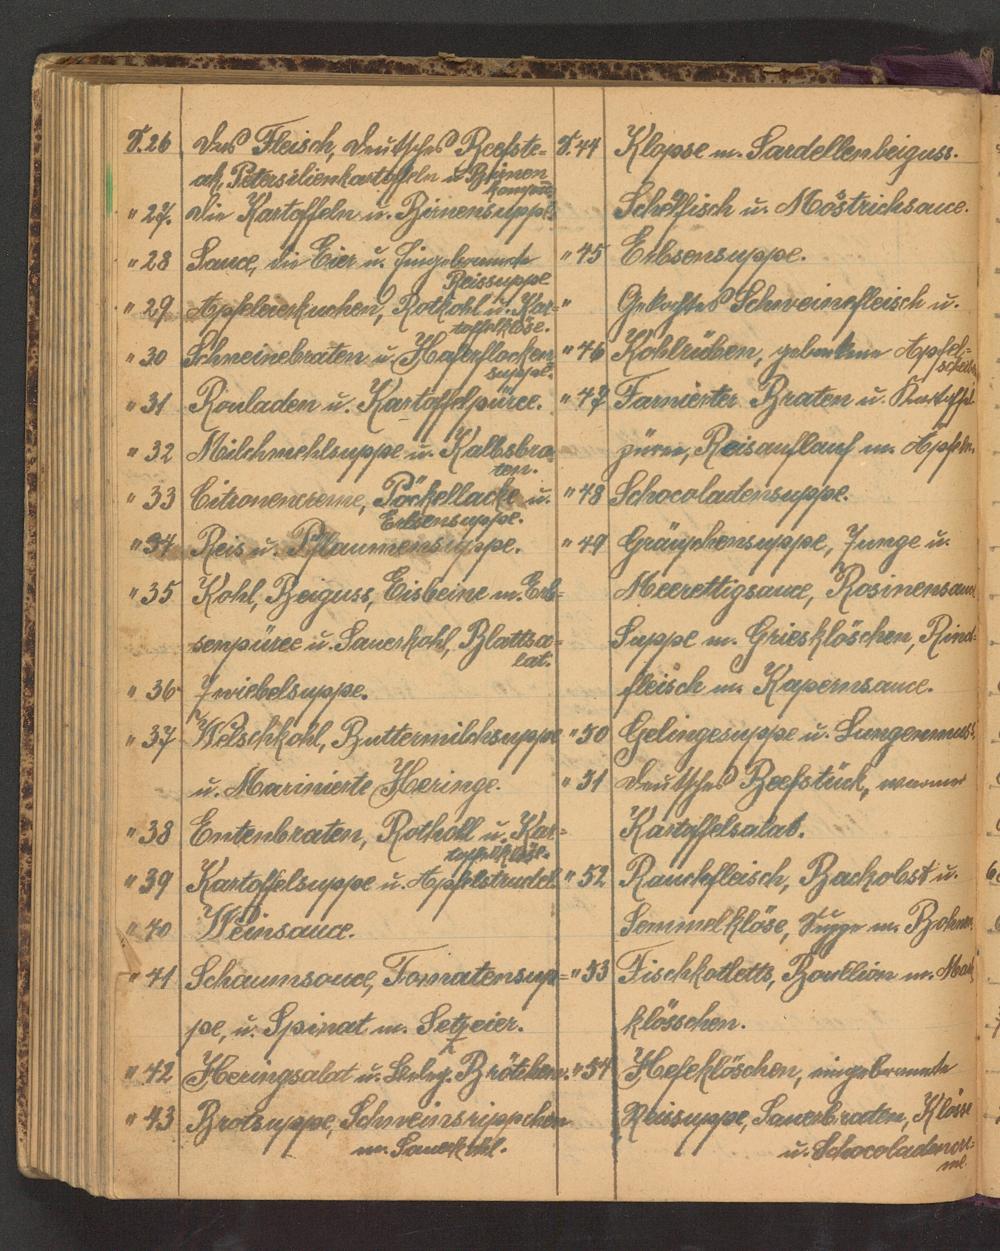 S. 26 das Fleisch, deutsches Beefste-
ak, Petersilienkartoffeln u. Birnen
kompott
" 27. die Kartoffeln u. Birnensuppe
" 28 Sauce, die Eier u. Eingebrannte
Reissuppe
" 29 Apfeleierkuchen, Rotkohl u. Kar-
toffelklöse.
" 30 Schweinebraten u. Haferflocken
suppe.
" 31 Rouladen u. Kartoffelpüree.
" 32 Milchmehlsuppe u. Kalbsbra-
ten.
" 33 Citronencreme, Pöckellacke u.
Erbsensuppe.
" 34 Reis u. Pflaumensuppe.
" 35 Kohl, Beiguss, Eisbeine m. Erb-
senpüree u. Sauerkohl, Blattsa-
lat.
" 36 Zwiebelsuppe.
" 37 Welschkohl, Buttermilchsuppe
u. Marinierte Heringe.
" 38 Entenbraten, Rotkoll u. Kar-
toffelklöse.
" 39 Kartoffelsuppe u. Apfelstrudel
" 40 Weinsauce.
" 41 Schaumsauce, Tomatensup-
pe, u. Spinat m. Setzeier.
" 42 Heringsalat u. Beleg. Brötchen.
" 43 Brotsuppe, Schweinsrippchen
m. Sauerkohl.
S. 44 Klopse m. Sardellenbeiguss.
Schelfisch u. Möstrichsauce.
" 45 Erbsensuppe.
" Gekochtes Schweinefleisch u.
" 46 Kohlrüben, gebackene Apfel-
scheiben
" 47 Farnierter Braten u. Kartoffel
püree, Reisauflauf m. Äpfeln.
" 48 Schocoladensuppe.
" 49 Gräupchensuppe, Zunge u.
Meerettigsauce, Rosinensauce
Suppe m. Griesklöschen, Rind-
fleisch m. Kapernsauce.
" 50 Gelingesuppe u. Lungenmuss.
" 51 deutsches Beefstück, warmer
Kartoffelsalat.
" 52 Rauchfleisch, Backobst u.
Semmelklöse, Suppe m. Bohnen.
" 53 Fischkotletts, Boullion m. Mark
klösschen.
" 54 Hefeklöschen, eingebrannte
Reisuppe, Sauerbraten, Klösse
u. Schocoladen